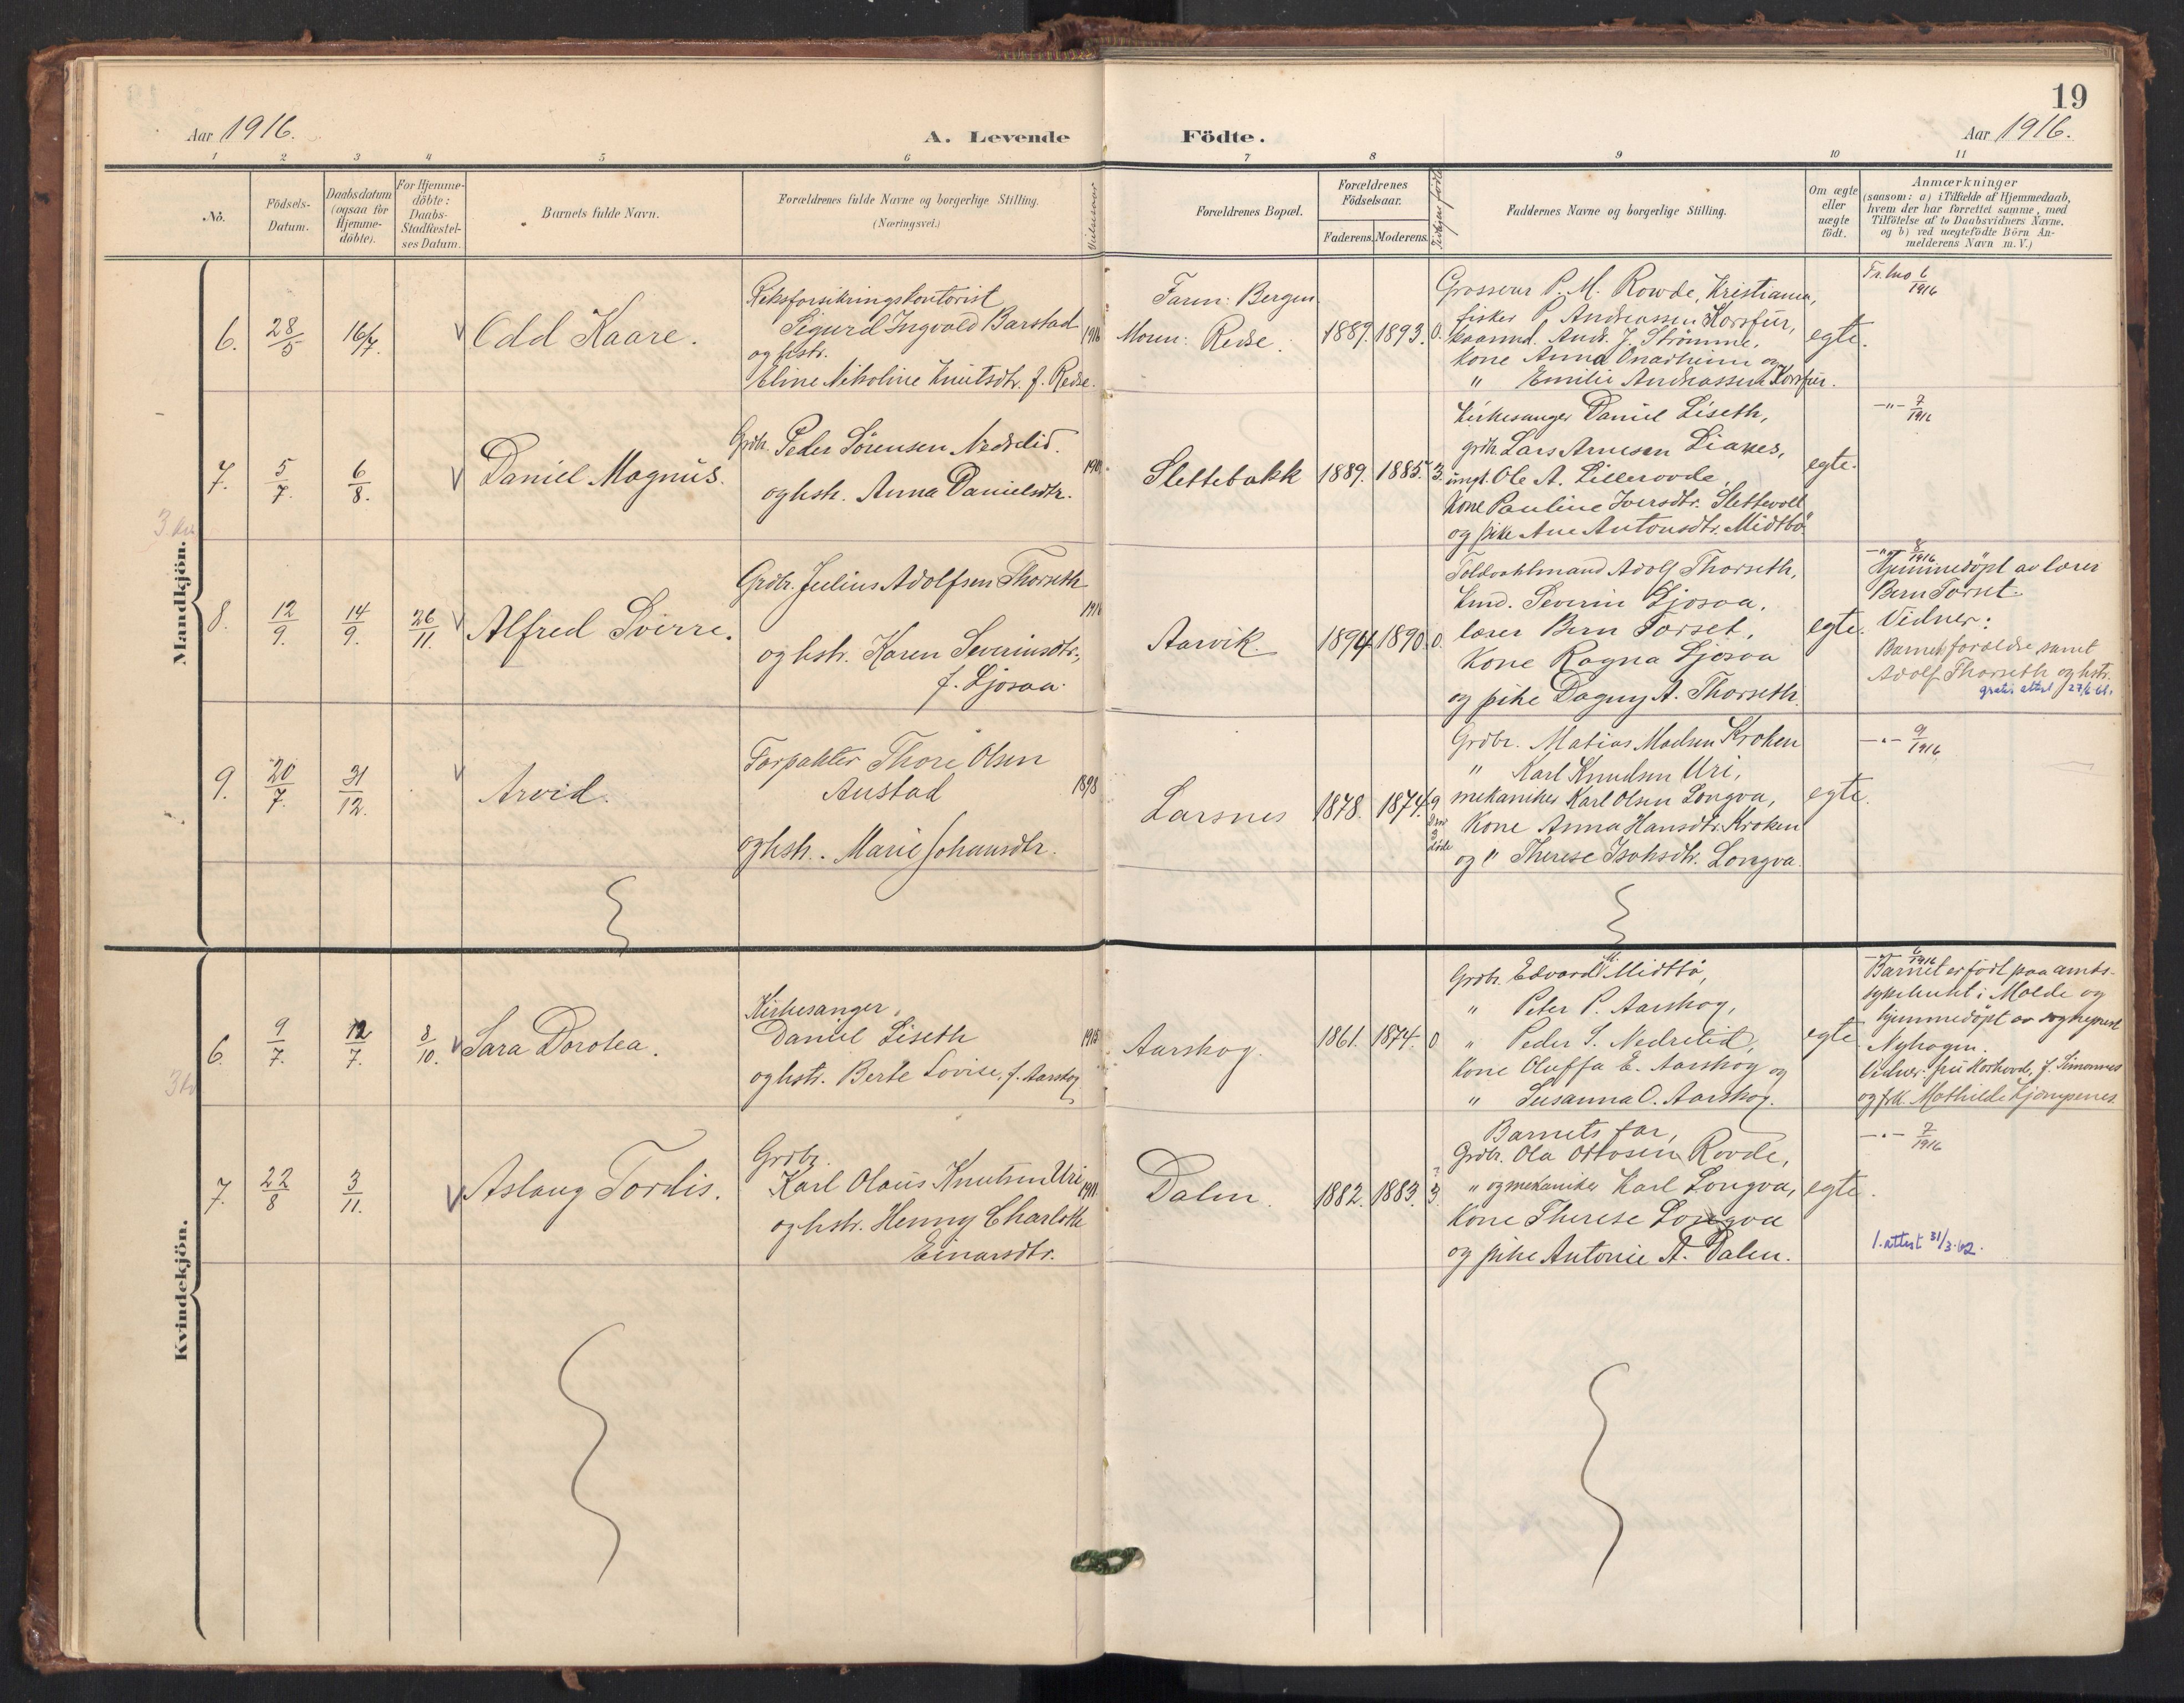 19
Aar 1916.
A. Levende Födte.
Aar 1916.
1 2 3 4 5 6 7 8 9 10 11
No.
Födsels-
Datum.
Daabsdatum
(ogsaa for
Hjemme-
döbte).
For Hjemme-
döbte:
Daabs-
Stadfæstel-
ses Datum.
Barnets fulde Navn.
Forældrenes fulde Navne og borgerlige Stilling.
(Næringsvei.)
Vielsesaar
Forældrenes Bopæl.
Forældrenes
Födselsaar.
Faderens. Moderens.
Faddernes Navne og borgerlige Stilling.
Om ægte
eller
uægte
födt.
Anmærkninger
(saasom: a) i Tilfælde af Hjemmedaab,
hvem der har forrettet samme, med
Tilföielse af to Daabsvidners Navne,
og b) ved uægtefödte Börn An-
melderens Navn m. V.)
Mandkjön.
6. 28/5 16/7 Odd Kaare.
Riksforsikringskontorist
Sigurd Ingvald Barstad
og hstr.
Eline Nikoline Knutsdtr. f. Redse.
1916
Faren: Bergen
Moren: Redse.
1889. 1893. 0.
Grosserer P. M. Rovde, Kristiania,
fisker P. Andreassen Korsfur,
And. J. Strömme,
kone Anna Onarheim og
" Emilie Andreassen Korsfur.
egte.
6/1916
7. 5/7. 6/8. Daniel Magnus.
Grdbr. Peder Sörensen Nedrelid.
og hstr. Anna Danielsdtr.
Slettebakk 1889. 1885. 3.
Kirkesanger Daniel Liseth,
grdbr. Lars Arnesen Liaxes,
ungk. Ole A. Lillerovde,
Kone Pauline Iversdtr. Slettevoll
og pike Ane Antonsdtr. Midtbö
egte.
-"- 7/1916
8. 12/9. 14/9. 26/11. Alfred Sverre.
Grdbr. Julius Adolfsen Thorseth
og hstr. Karen Severinsdtr,
f. Ljosaa.
1916
Aarvik. 1894 1890. 0.
Toldopsynsmand Adolf Thorseth,
Severin Ljosaa,
lærer Bern Torset,
Kone Ragna Ljosaa
og pike Dagny A. Thorseth.
egte.
-"- 8/1916
Hjemmedöpt av lærer
Bern Torset.
Vidner:
Barnets forældre samt
Adolf Thorseth og hstr.
gratis attest 27/6 61.
9. 20/7. 31/12. Arvid.
Forpakter Thore Olsen
Austad
og hstr. Marie Johansdtr.
1898
Larsnes 1878. 1874. 9
3
döde
Grdbr. Matias Madsen Kroken
" Karl Knudsen Uri,
mekaniker Karl Olsen Longva,
Kone Anna Hansdtr. Kroken
og " Therese Isaksdtr. Longva.
egte.
-"- 9/1916
Kvindekjön.
6. 9/7. 12/7. 8/10. Sara Dorotea.
Kirkesanger
Daniel Liseth
og hstr. Berte Lovise, f. Aarskog
1915
Aarskog. 1861. 1874. 0
Grdbr. Edvard M. Midtbö,
" Peter P. Aarskog,
" Peder S. Nedrelid,
Kone Oluffa E. Aarskog og
" Susanna O. Aarskog.
egte
6/1916
Barnet er födt paa amts-
sykehuset i Molde og
hjemmedöpt av sogneprest
Nyhagen.
Vidner: fru Korhood, f. Simonnes
og frk. Mathilde Kjempenes.
7. 22/8 3/11. Aslaug Tordis.
Grdbr.
Karl Olaus Knutsen Uri
og hstr. Henny Charlotte
Einarsdtr.
1911.
Dalen. 1882. 1883. 3.
Barnets far,
Grdbr. Ola Ottosen Rovde,
" og mekaniker Karl Longva,
Kone Therese Longva
og pike Antonie A. Dalen.
egte.
-"- 7/1916
1. attest 31/3.62.